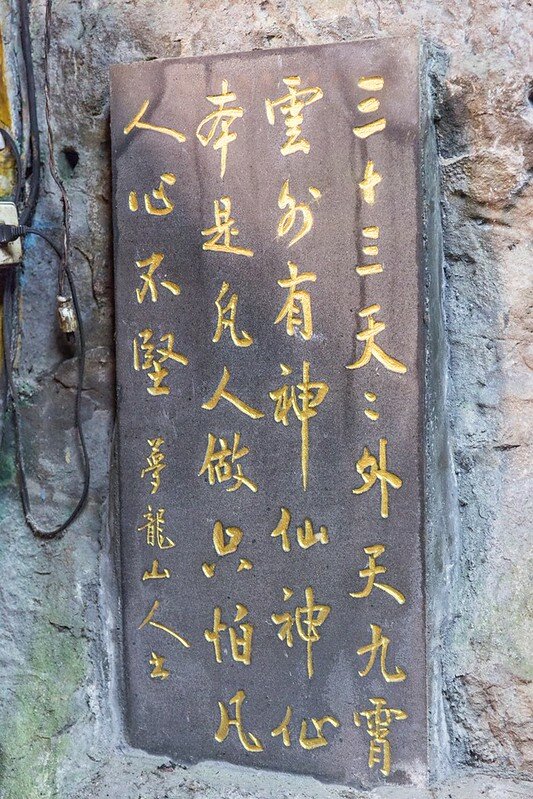 三十三天〻外天九霄
雲外有神仙神仙
本是凡人做只怕凡
人心不堅 夢龍山人书